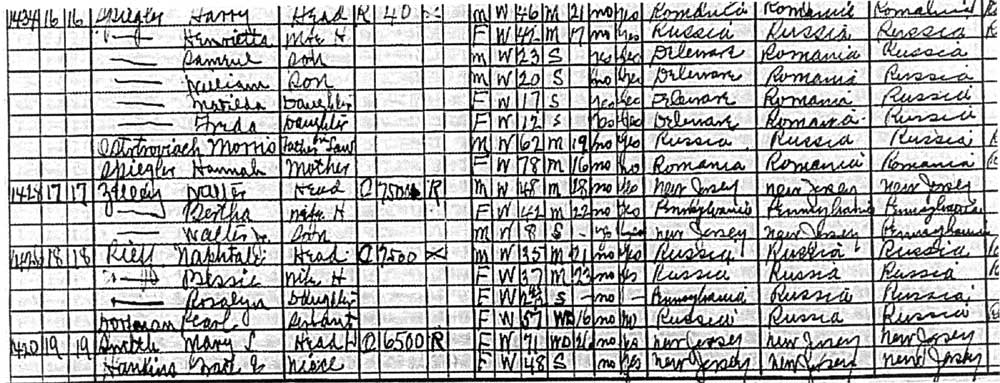 1434 16 16 Spiegler Harry Head R 40 M W 46 M 21 no yes Romania Romania Romania
Henrietta Wife H F W 42 M 17 no yes Russia Russia Russia
Samuel Son M W 23 S no yes Delaware Romania Russia
William Son M W 20 S no yes Delaware Romania Russia
Matilda Daughter F W 17 S yes yes Delaware Romania Russia
Freda Daughter F W 12 S yes Delaware Romania Russia
Morris Father in Law M W 62 M 19 no yes Russia Russia Russia
Spiegler Hannah Mother F W 78 M 16 no Romania Romania Romania
1428 17 17 Walter Head O 7500 R M W 48 M 18 no yes New Jersey New Jersey New Jersey
Bertha Wife H F W 42 M 22 no yes Pennsylvania Pennsylvania Pennsylvania
Walter Jr. Son M W 8 S New Jersey New Jersey Pennsylvania
18 18 Rieff Naphtali Head O 7500 M W 35 M 21 no yes Russia Russia Russia
Bessie Wife H F W 37 M 23 no yes Russia Russia Russia
Rosalyn Daughter F W S no Pennsylvania Russia Russia
Pearl Servant F W 57 Wd 16 no yes Russia Russia Russia
1420 19 19 Mary S Head O 6500 R F W 71 Wd no yes New Jersey New Jersey New Jersey
Hankins Niece F W 48 S no yes New Jersey New Jersey New Jersey